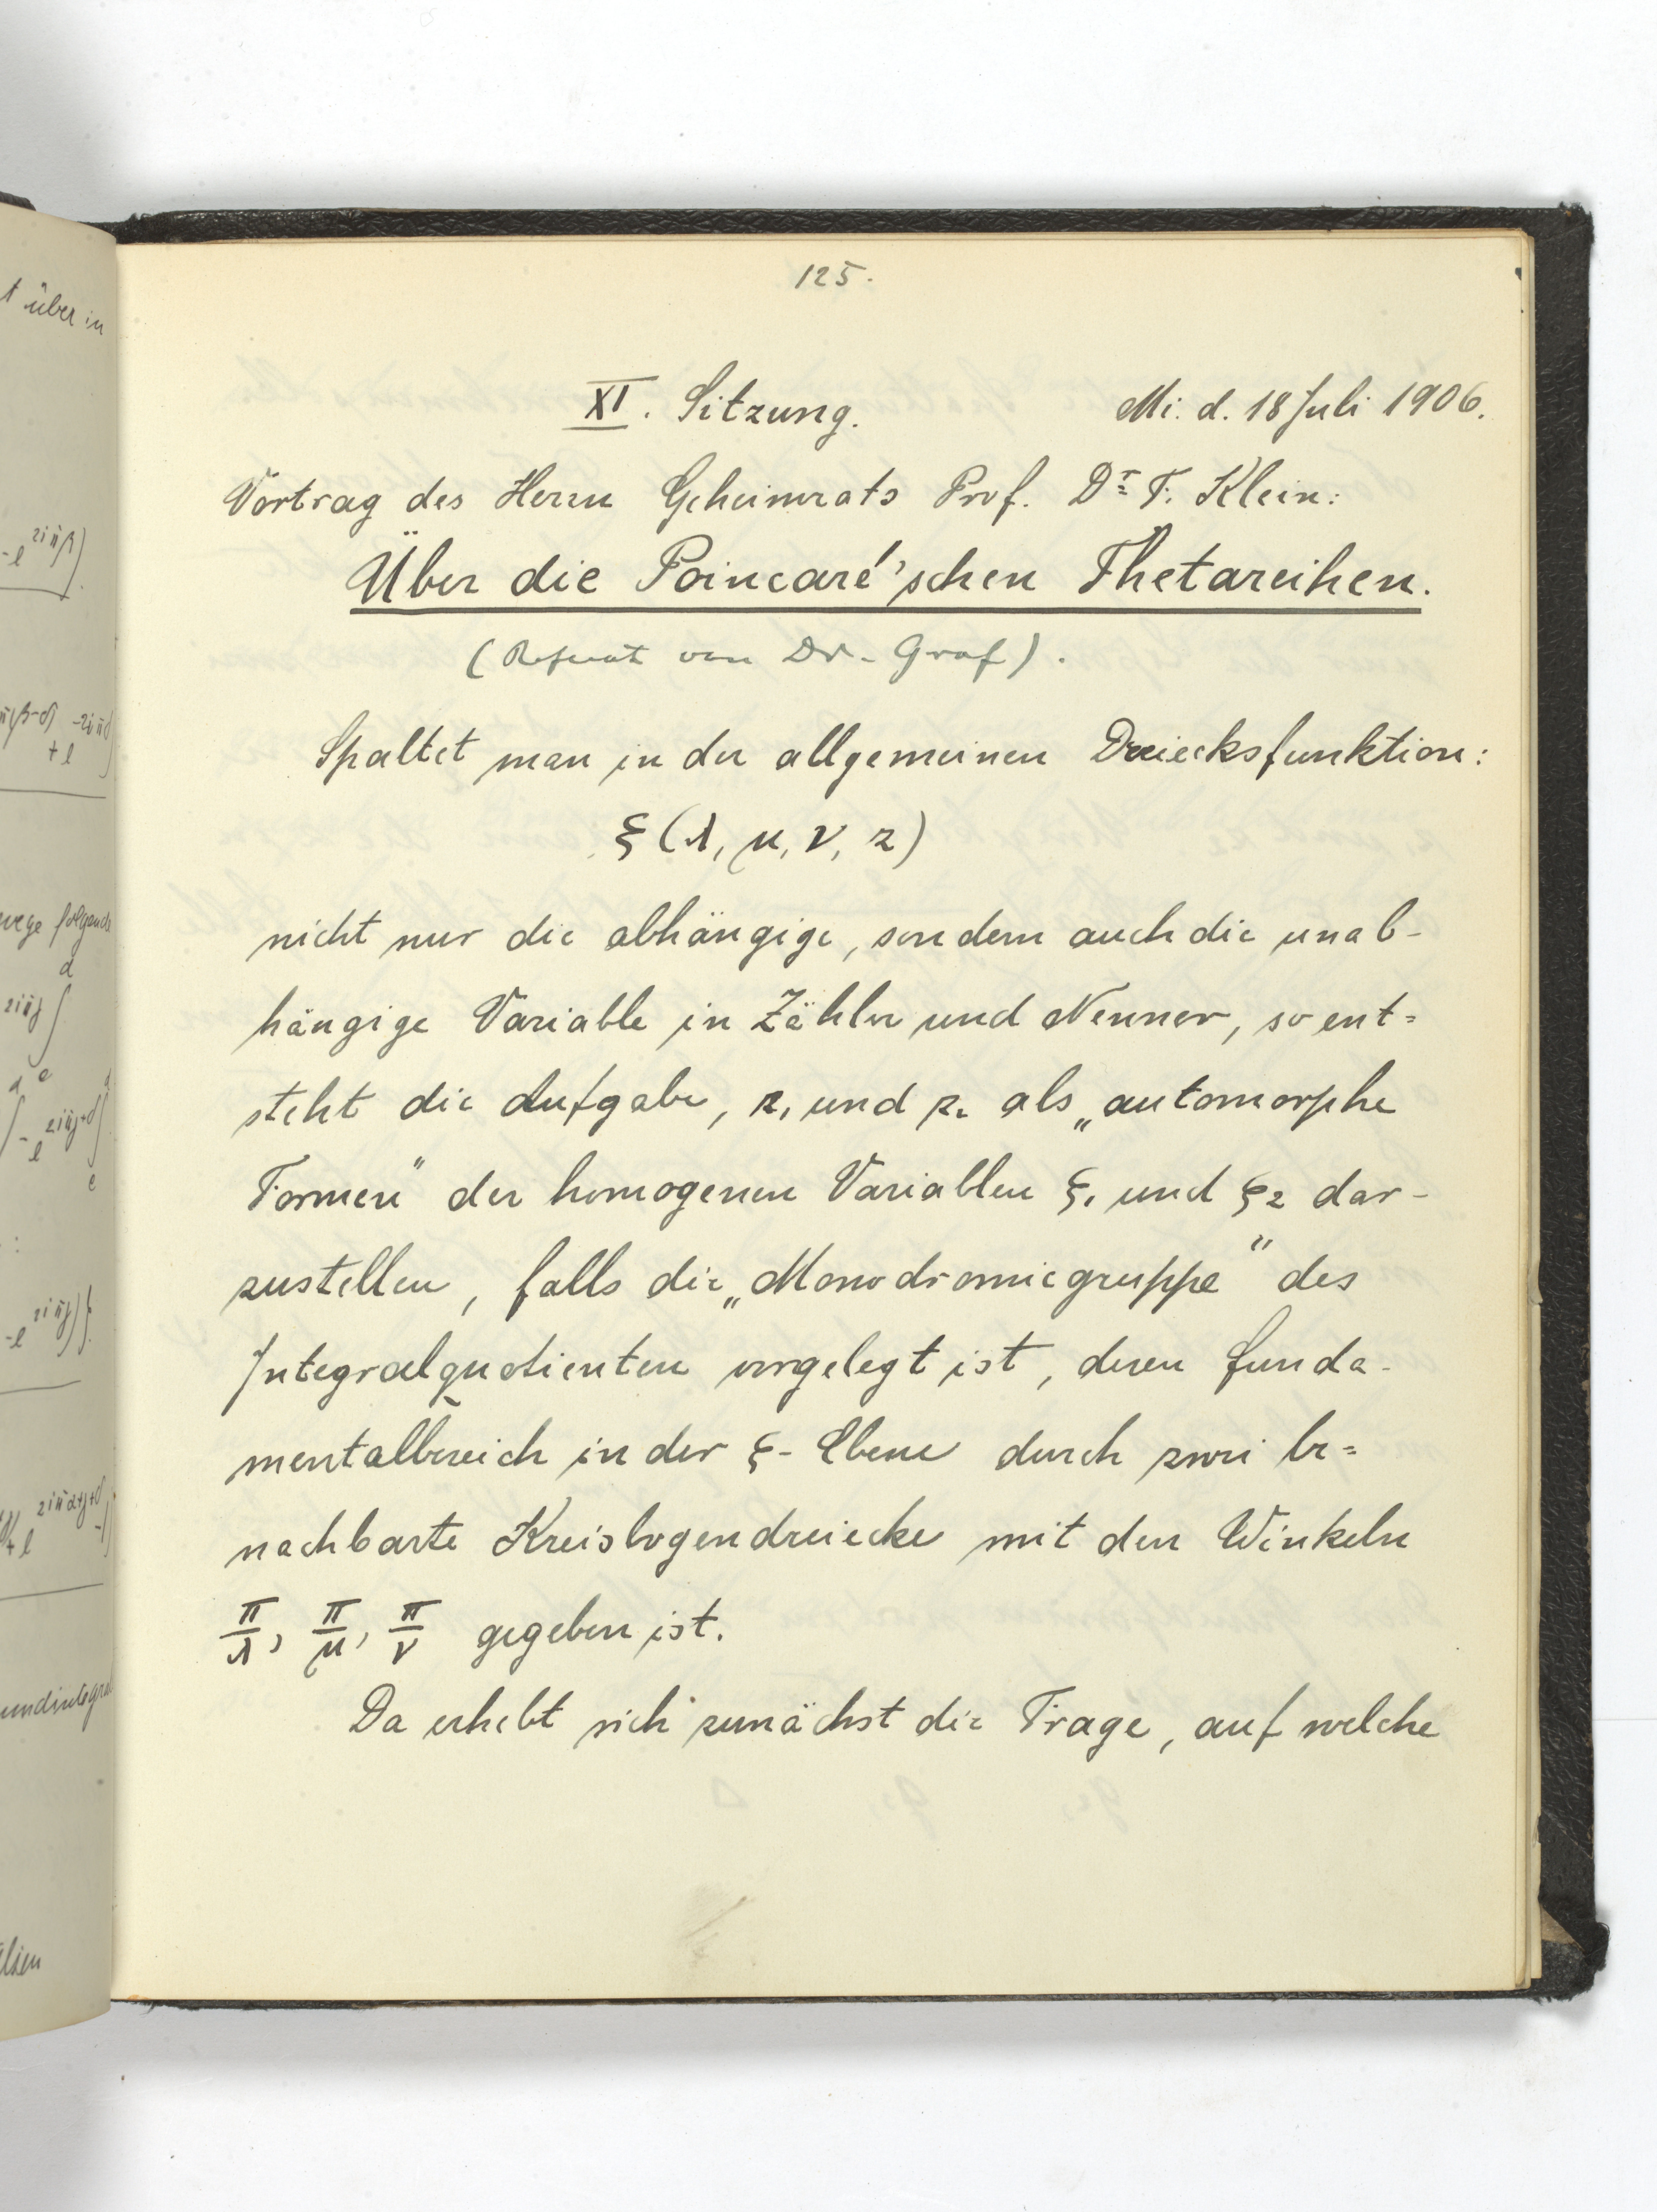 125.
XI. Sitzung. Mi. d. 18 Juli 1906.
Vortrag des Herrn Geheimrats Prof. Dr. F. Klein:
Über die Poincaré'schen Thetareihen.
(Referat von Dr. Graf).
Spaltet man in der allgemeinen Dreiecksfunktion:
ξ(λ, μ, ν, z)
nicht nur die abhängige, sondern auch die unab-
hängige Variable in Zähler und Nenner, so ent=
steht die Aufgabe, z₁ und z₂ als „automorphe
Formen" der homogenen Variablen ξ₁ und ξ₂ dar-
zustellen, falls die „Monodromiegruppe" des
Integralquotienten vorgelegt ist, deren Funda-
mentalbereich in der ξ-Ebene durch zwei be=
nachbarte Kreisbogendreiecke mit den Winkeln
π/λ, π/μ, π/ν gegeben ist.
Da erhebt sich zunächst die Frage, auf welche